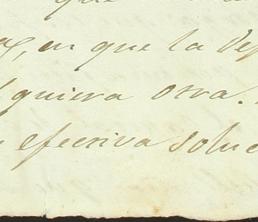 que
en que la
quiera otra.
efectiva solu